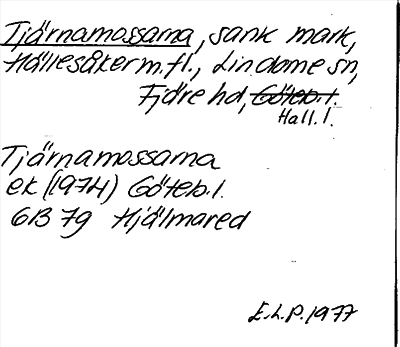 Tjärnamossarna, sank mark,
Hällesåker m.fl., Lindome sn,
Fjäre hd, Göteb.l.
Hall.l.
Tjärnamossarna
ek (1974) Göteb.l.
6B 7g Hjälmared
E.L.P. 1977